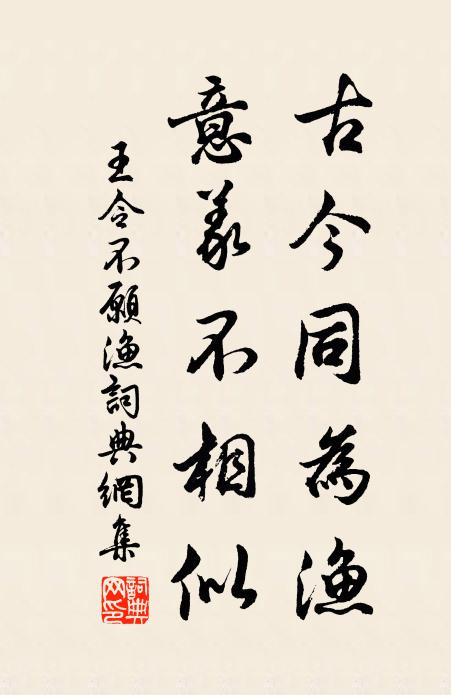 古今同為漁
意義不相似
王令不願漁詞典網集
詞典
网印